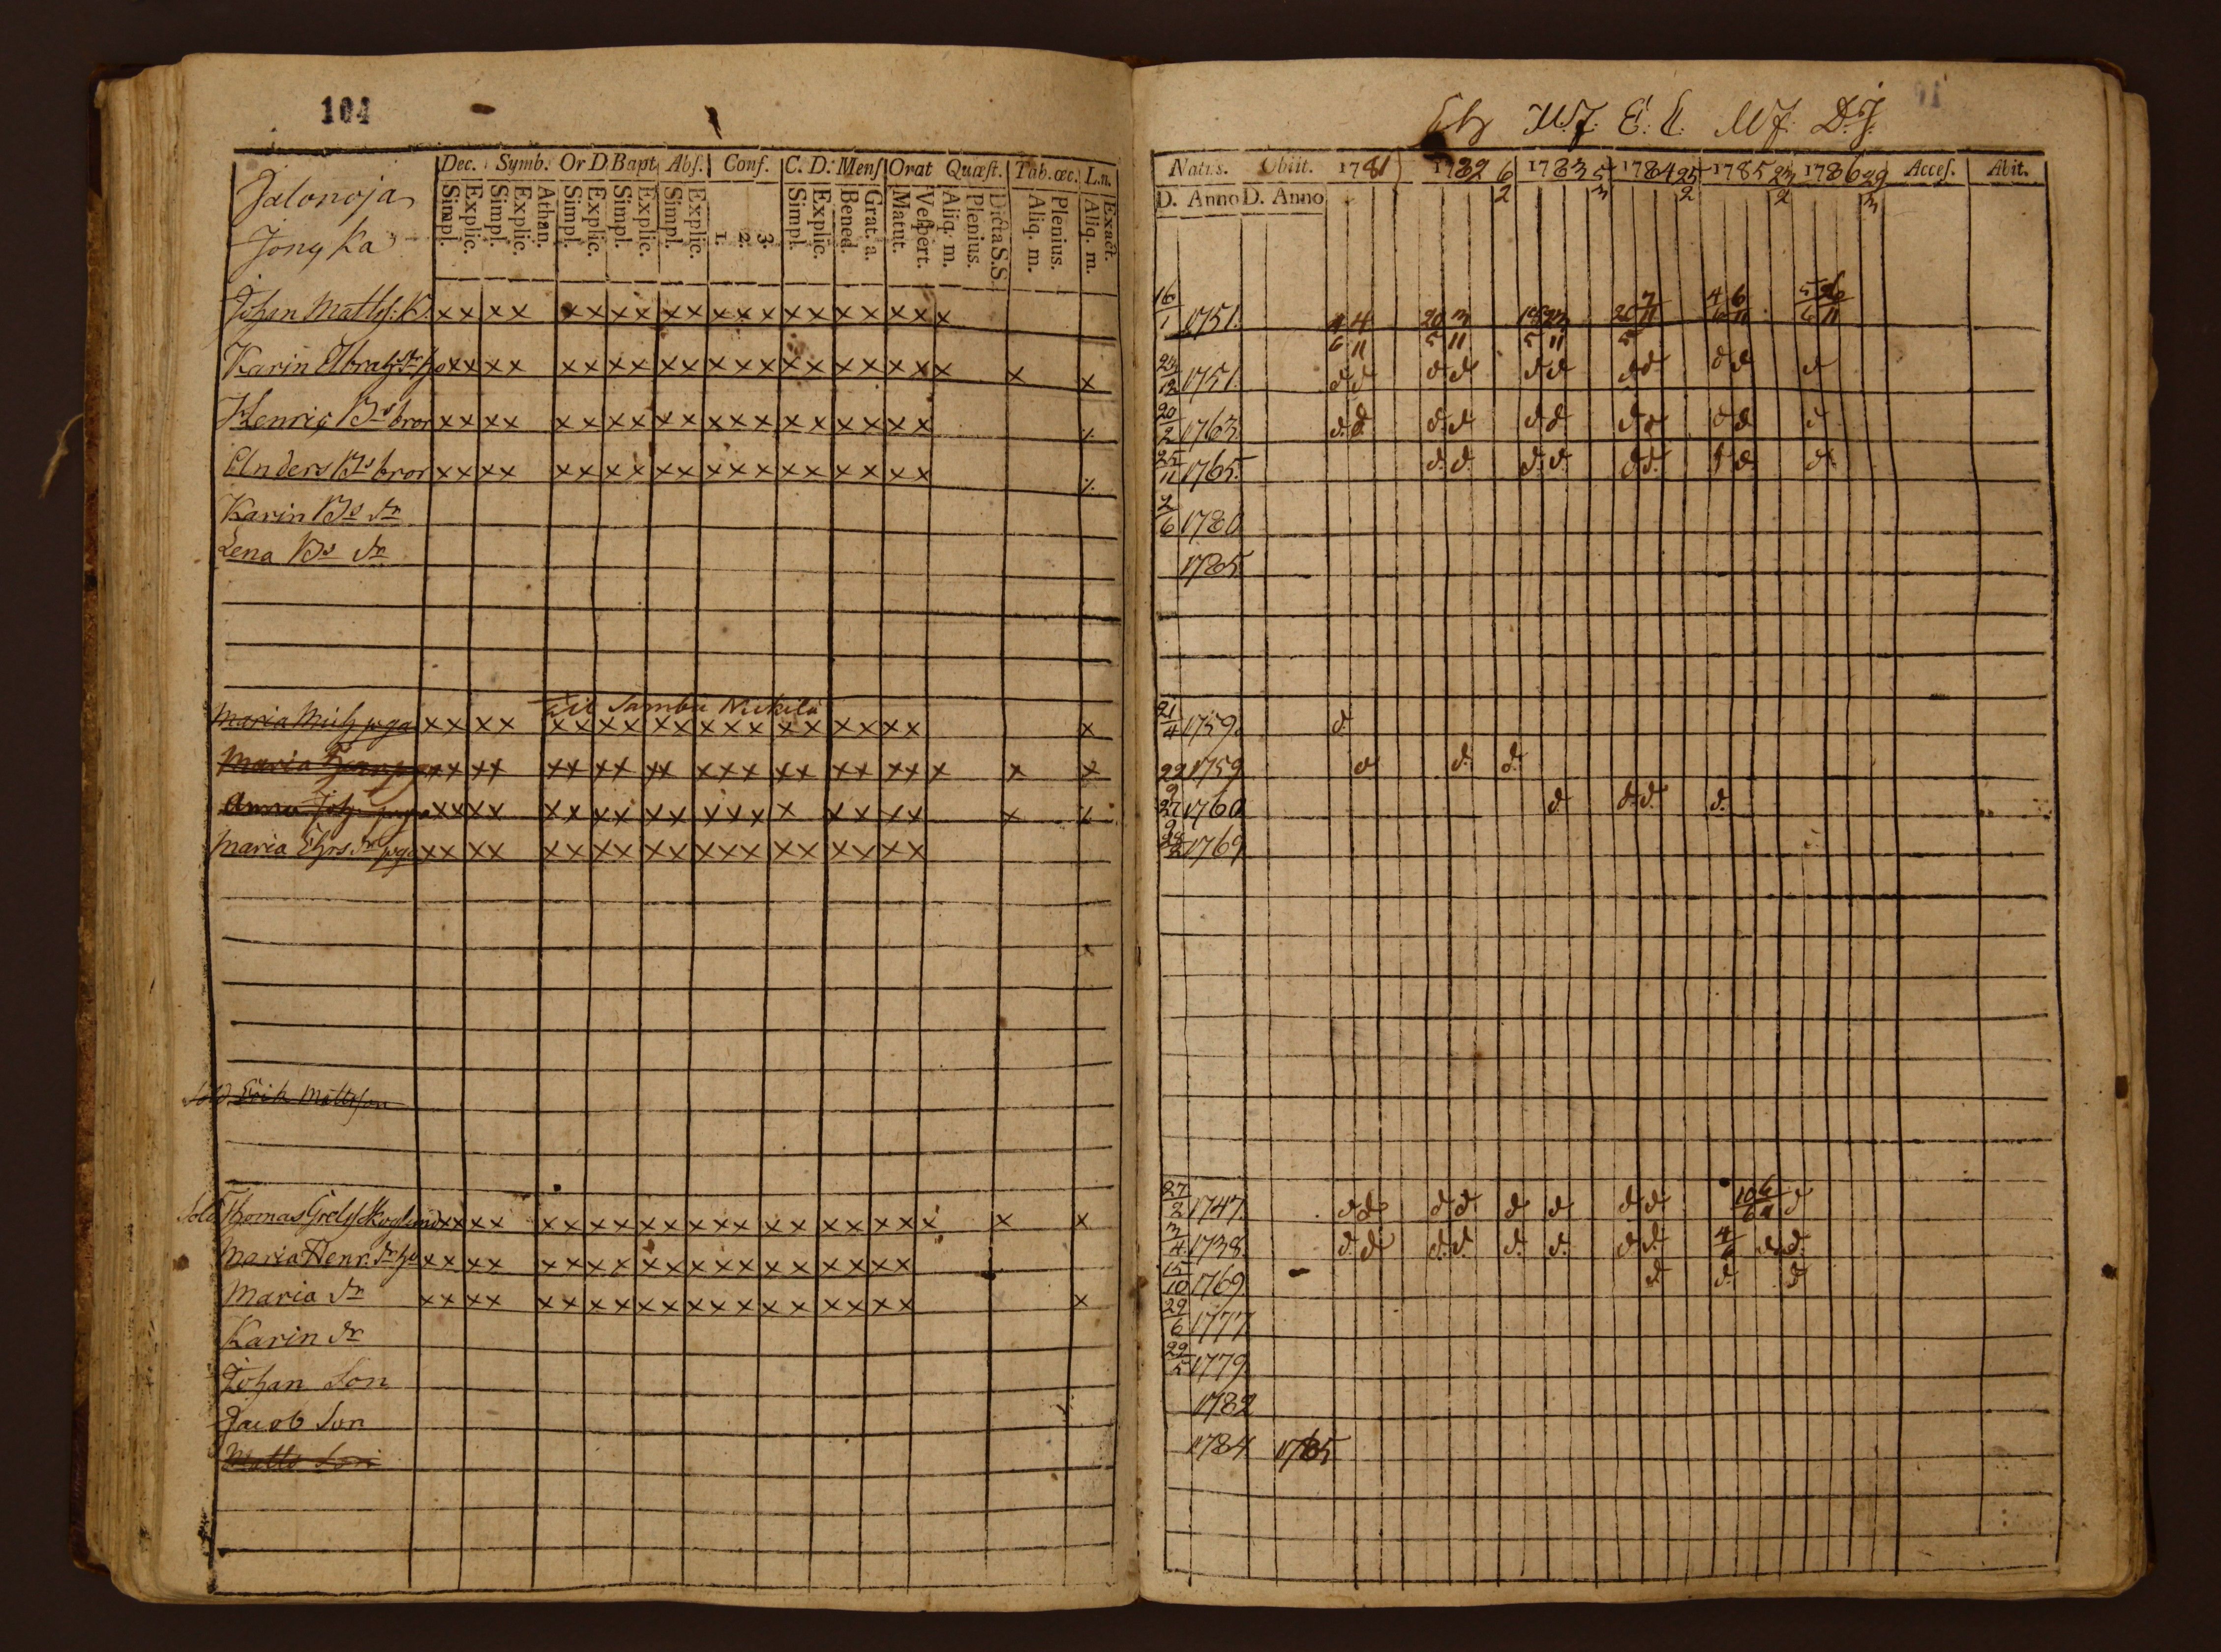 104
Dec. Symb. Or D. Bapt. Abſ. Conf. C. D. Menſ Orat Quæſt. Tab. œc. L.n.
Simpl. Explic. Simpl. Explic. Athan. Simpl. Explic. Simpl. Explic. Simpl. Explic. 1. 2. 3. Simpl. Explic. Bened. Grat. a. Matut. Veſpert. Aliq. m. Plenius. Dicta S.S. Aliq. m. Plenius. Aliq. m. Exact.
Jalonoja
Jong Ka
Johan Matts: B. x x x x x x x x x x x x x x x x x x x x
Karin Abrah dr hu x x x x x x x x x x x x x x x x x x x x x x
Henric Bs bror x x x x x x x x x x x x x x x x x x x
Anders Bs bror x x x x x x x x x x x x x x x x x x x
Karin Bs dr
Lena Bs dr
til Nickilä
Maria piga x x x x x x x x x x x x x x x x x x x x
Maria x x x x x x x x x x x x x x x x x x x x x x
Anna Joh piga x x x x x x x x x x x x x x x x x x x
Maria dr piga x x x x x x x x x x x x x x x x x x x
Sold Erik Mattsson
Sold Thomas Skoglund x x x x x x x x x x x x x x x x x x x x x x
Maria Henr. dr hu x x x x x x x x x x x x x x x x x x x
Maria dr x x x x x x x x x x x x x x x x x x x x
Karin dr
Johan Son
Jacob Son
Matts Son
M.J. E. E. M J. D.J.
Natus. Obiit. 1781 1782 6/2 1783 5/3 1784 25/2 1785 23/2 1786 29/3 Acceſ. Abit.
D. Anno D. Anno
16/1 1751. 4/6 4/11 20/5 3/11 18/5 23/11 20/5 7/11 4/6 6/11 5/6 26/11
24/12 1751. d d d d d d d d d d d
20/2 1763 d. d d. d d d d d d d d
25/11 1765. d. d. d. d. d d. d d d
2/6 1780
1785
21/4 1759. d.
22/9 1759 d d. d.
27/9 1760 d d. d. d.
28/2 1769
27/2 1747. d d d d d d d d 10/6 6/11 d
3/4 1738. d. d d. d. d. d. d d. 4/6 d. d.
15/10 1769 d d. d
29/6 1777
29/5 1779
1782
1784 1785